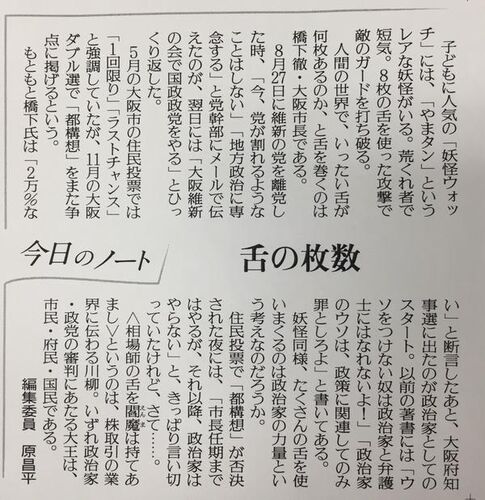 今日のノート
舌の枚数
子どもに人気の「妖怪ウォッ
チ」には、「やまタン」という
レアな妖怪がいる。荒くれ者で
短気。8枚の舌を使った攻撃で
敵のガードを打ち破る。
人間の世界で、いったい舌が
何枚あるのか、と舌を巻くのは
橋下徹・大阪市長である。
8月27日に維新の党を離党し
た時、「今、党が割れるような
ことはしない」「地方政治に専
念する」と党幹部にメールで伝
えたのが、翌日には「大阪維新
の会で国政政党をやる」とひっ
くり返した。
5月の大阪市の住民投票では
「1回限り」「ラストチャンス」
と強調していたが、11月の大阪
ダブル選で「都構想」をまた争
点に掲げるという。
もともと橋下氏は「2万%な
い」と断言したあと、大阪府知
事選に出たのが政治家としての
スタート。以前の著書には「ウ
ソをつけない奴は政治家と弁護
士にはなれないよ!」「政治家
のウソは、政策に関連してのみ
罪としろよ」と書いてある。
妖怪同様、たくさんの舌を使
いまくるのは政治家の力量とい
う考えなのだろうか。
住民投票で「都構想」が否決
された夜には、「市長任期まで
はやるが、それ以降、政治家は
やらない」と、きっぱり言い切
っていたけれど、さて……。
〈相場師の舌を閻魔は持てあ
えんま
まし〉というのは、株取引の業
界に伝わる川柳。いずれ政治家
・政党の審判にあたる大王は、
市民・府民・国民である。
編集委員 原昌平